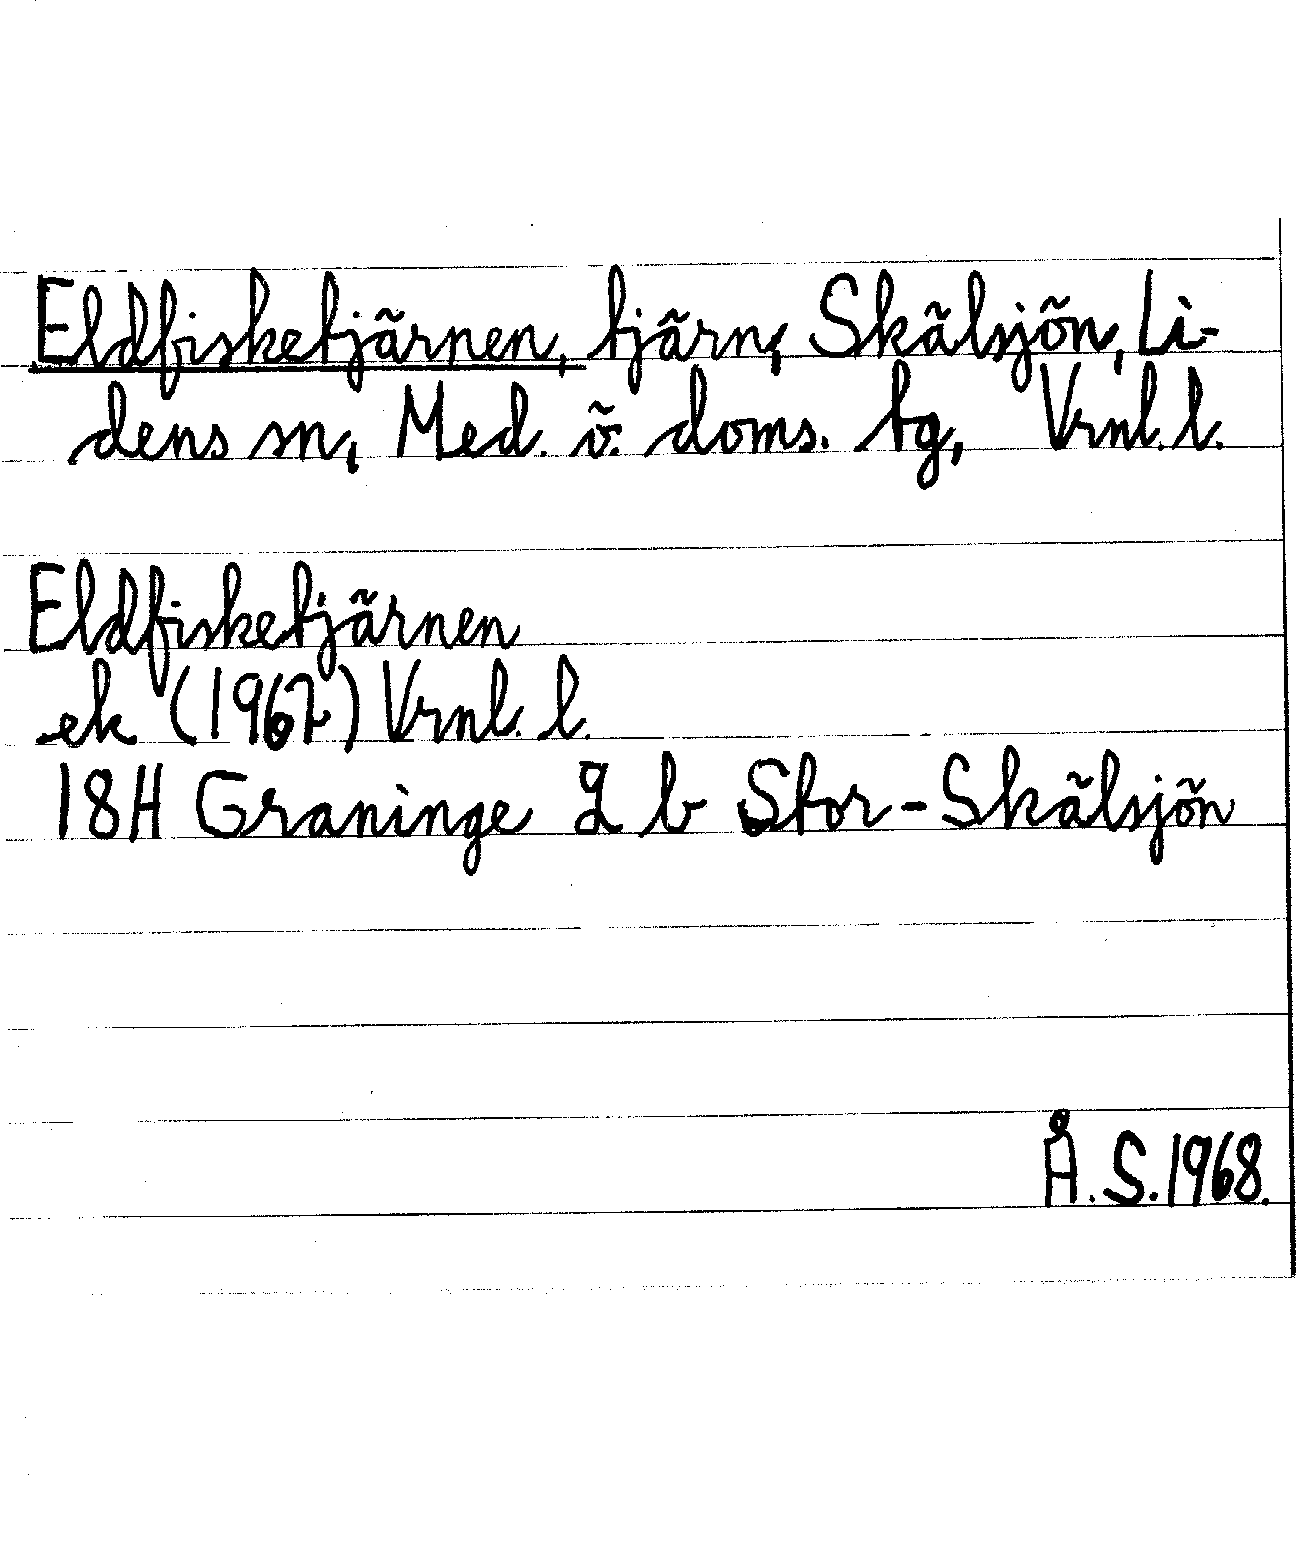 Eldfisketjärnen, tjärn, Skälsjön, Li-
dens sn, Med. ö. doms. tg, Vrnl. l.
Eldfisketjärnen
ek (1962) Vrnl. l.
18H Graninge 2 b Stor-Skälsjön
Å.S.1968.